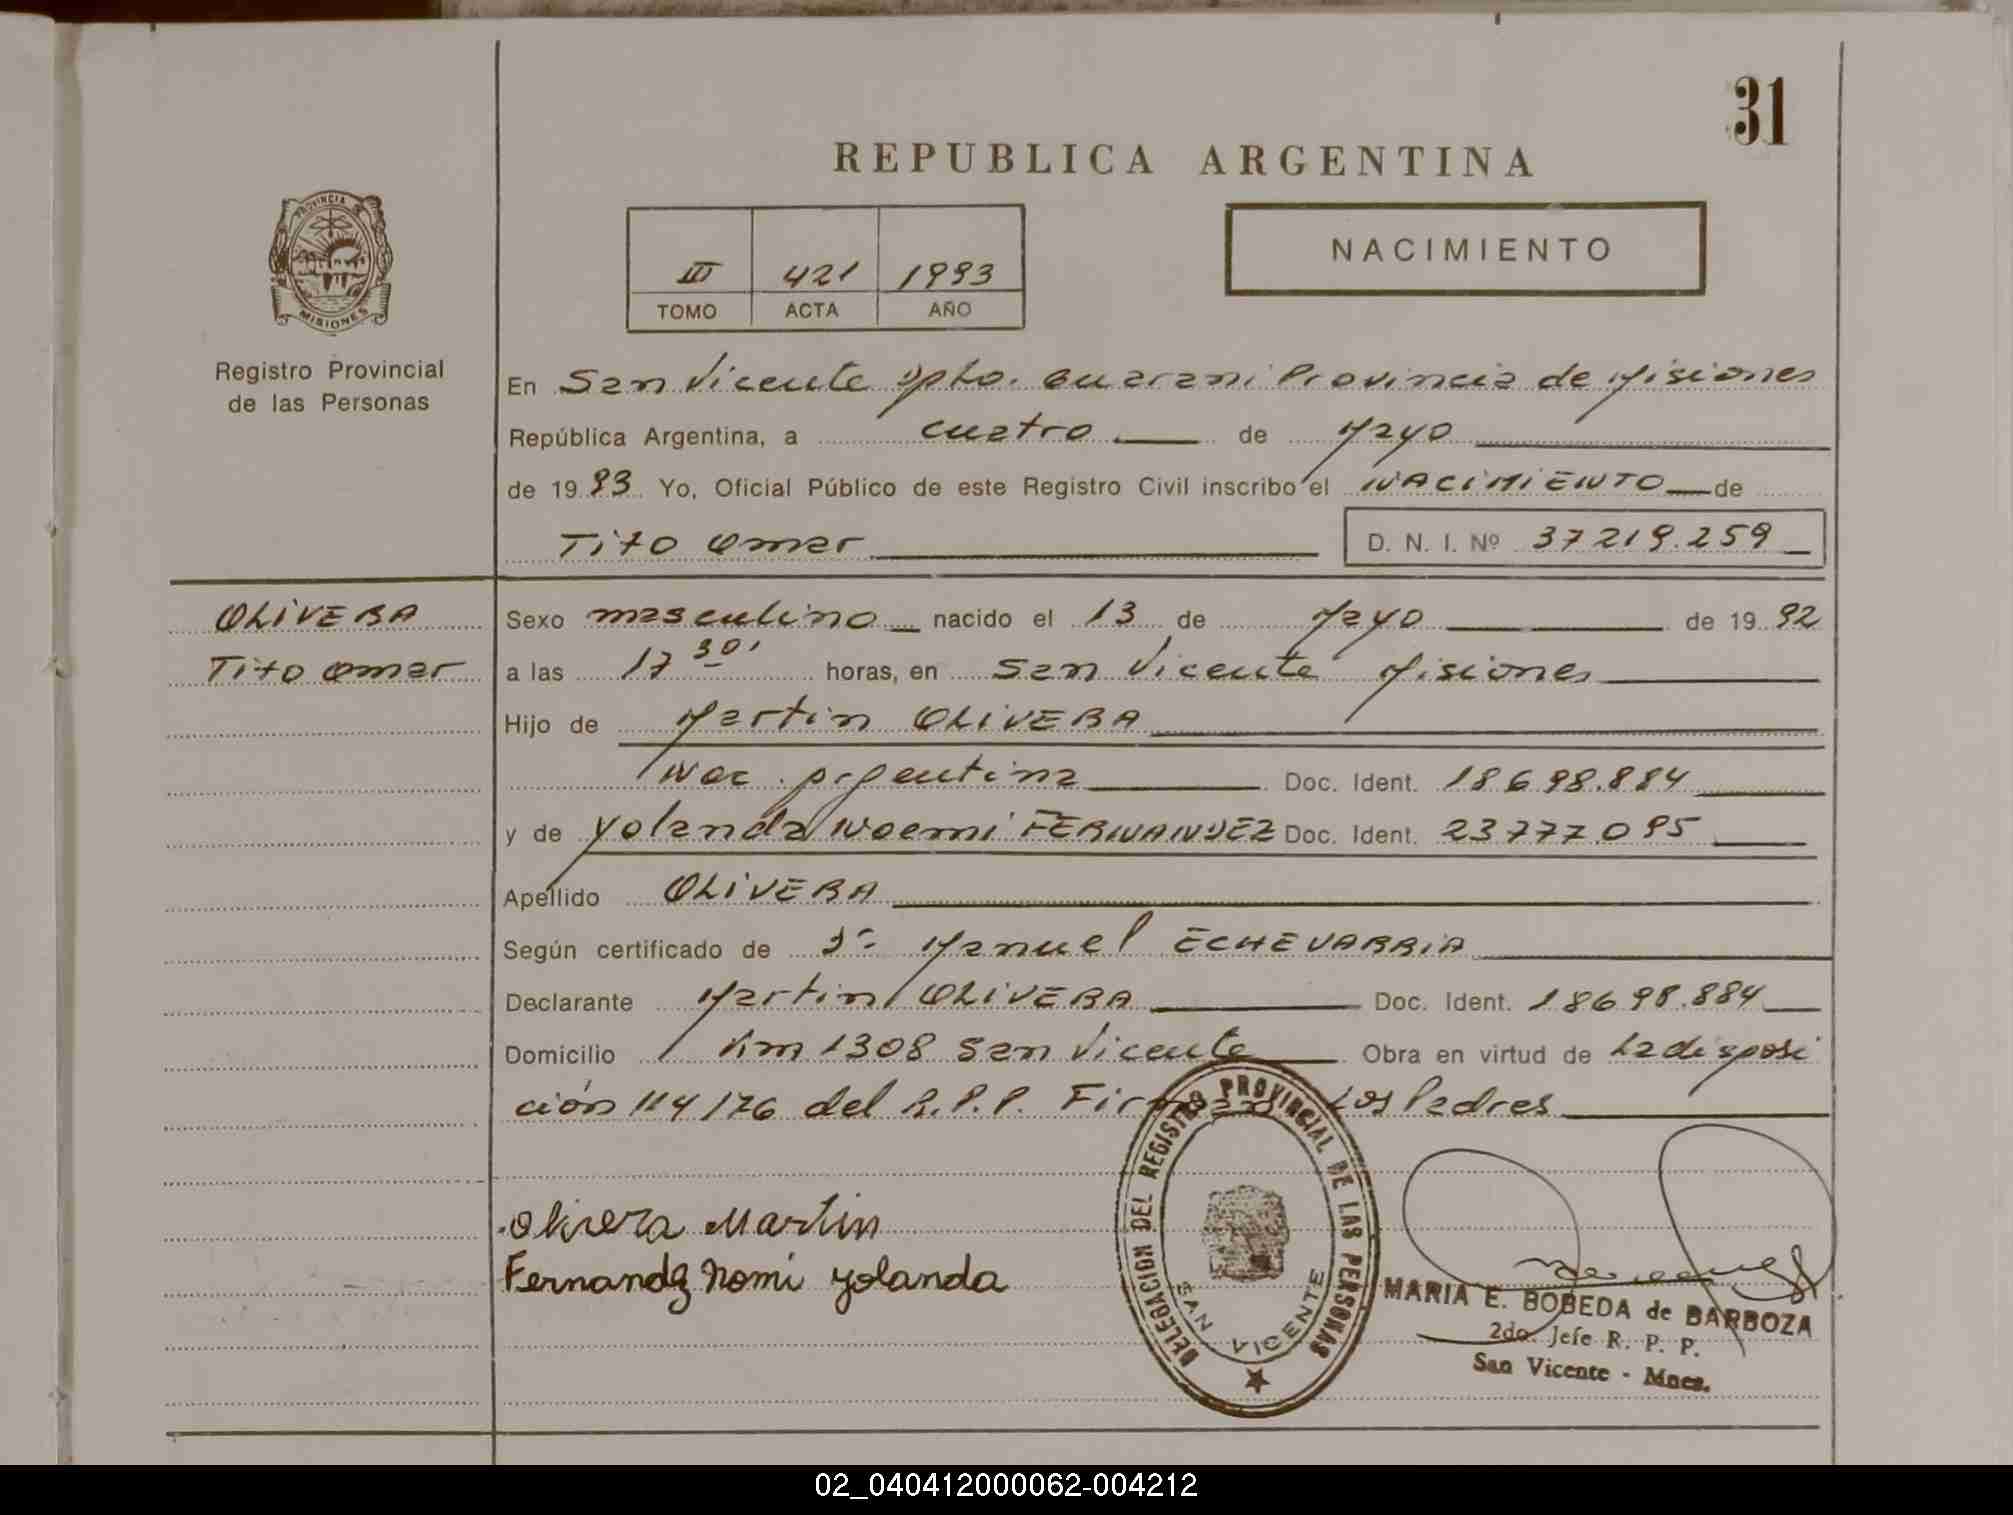 31
REPUBLICA ARGENTINA
III 421 1993
TOMO ACTA AÑO
NACIMIENTO
PROVINCIA
MISIONES
Registro Provincial
de las Personas
En San Vicente Dpto. Guarani Provincia de Misiones
República Argentina, a cuatro de Mayo
de 1993 Yo, Oficial Público de este Registro Civil inscribo el NACIMIENTO de
Tito Omar D. N. I. Nº 37219.259
OLIVERA
Tito Omar
Sexo masculino nacido el 13 de Mayo de 1992
a las 17 30' horas, en San Vicente Misiones
Hijo de Martin OLIVERA
Nac. Argentina Doc. Ident. 18698.884
y de Yolanda Noemi FERNANDEZ Doc. Ident. 23777.095
Apellido OLIVERA
Según certificado de Dr Manuel ECHEVARRIA
Declarante Martin OLIVERA Doc. Ident. 18698.884
Domicilio Km 1308 San Vicente Obra en virtud de La disposi
ción 114/76 del R.P.P. Firman Los Padres
Olivera Martin
Fernandz Nomi yolanda
DELEGACION DEL REGISTRO PROVINCIAL DE LAS PERSONAS
SAN VICENTE
MARIA E. BOBEDA de BARBOZA
2do. Jefe R. P. P.
San Vicente - Mnes.
02_040412000062-004212